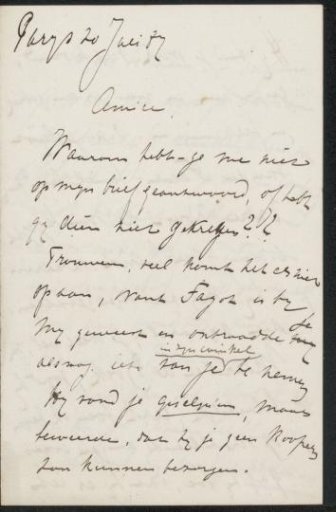 Parys 20 Juli 87
Amice,
Waarom hebt-ge me niet
op mijn brief geantwoord, of hebt
gij dien niet gekregen??
Trouwens, veel komt het er niet
op aan, want Fagot is by
my geweest en ontraadde
in zyn winkel
iets van je te nemen
Hy vond je geschrijf, maar
beweerde, dat hy je geen koopers
zou kunnen bezorgen.